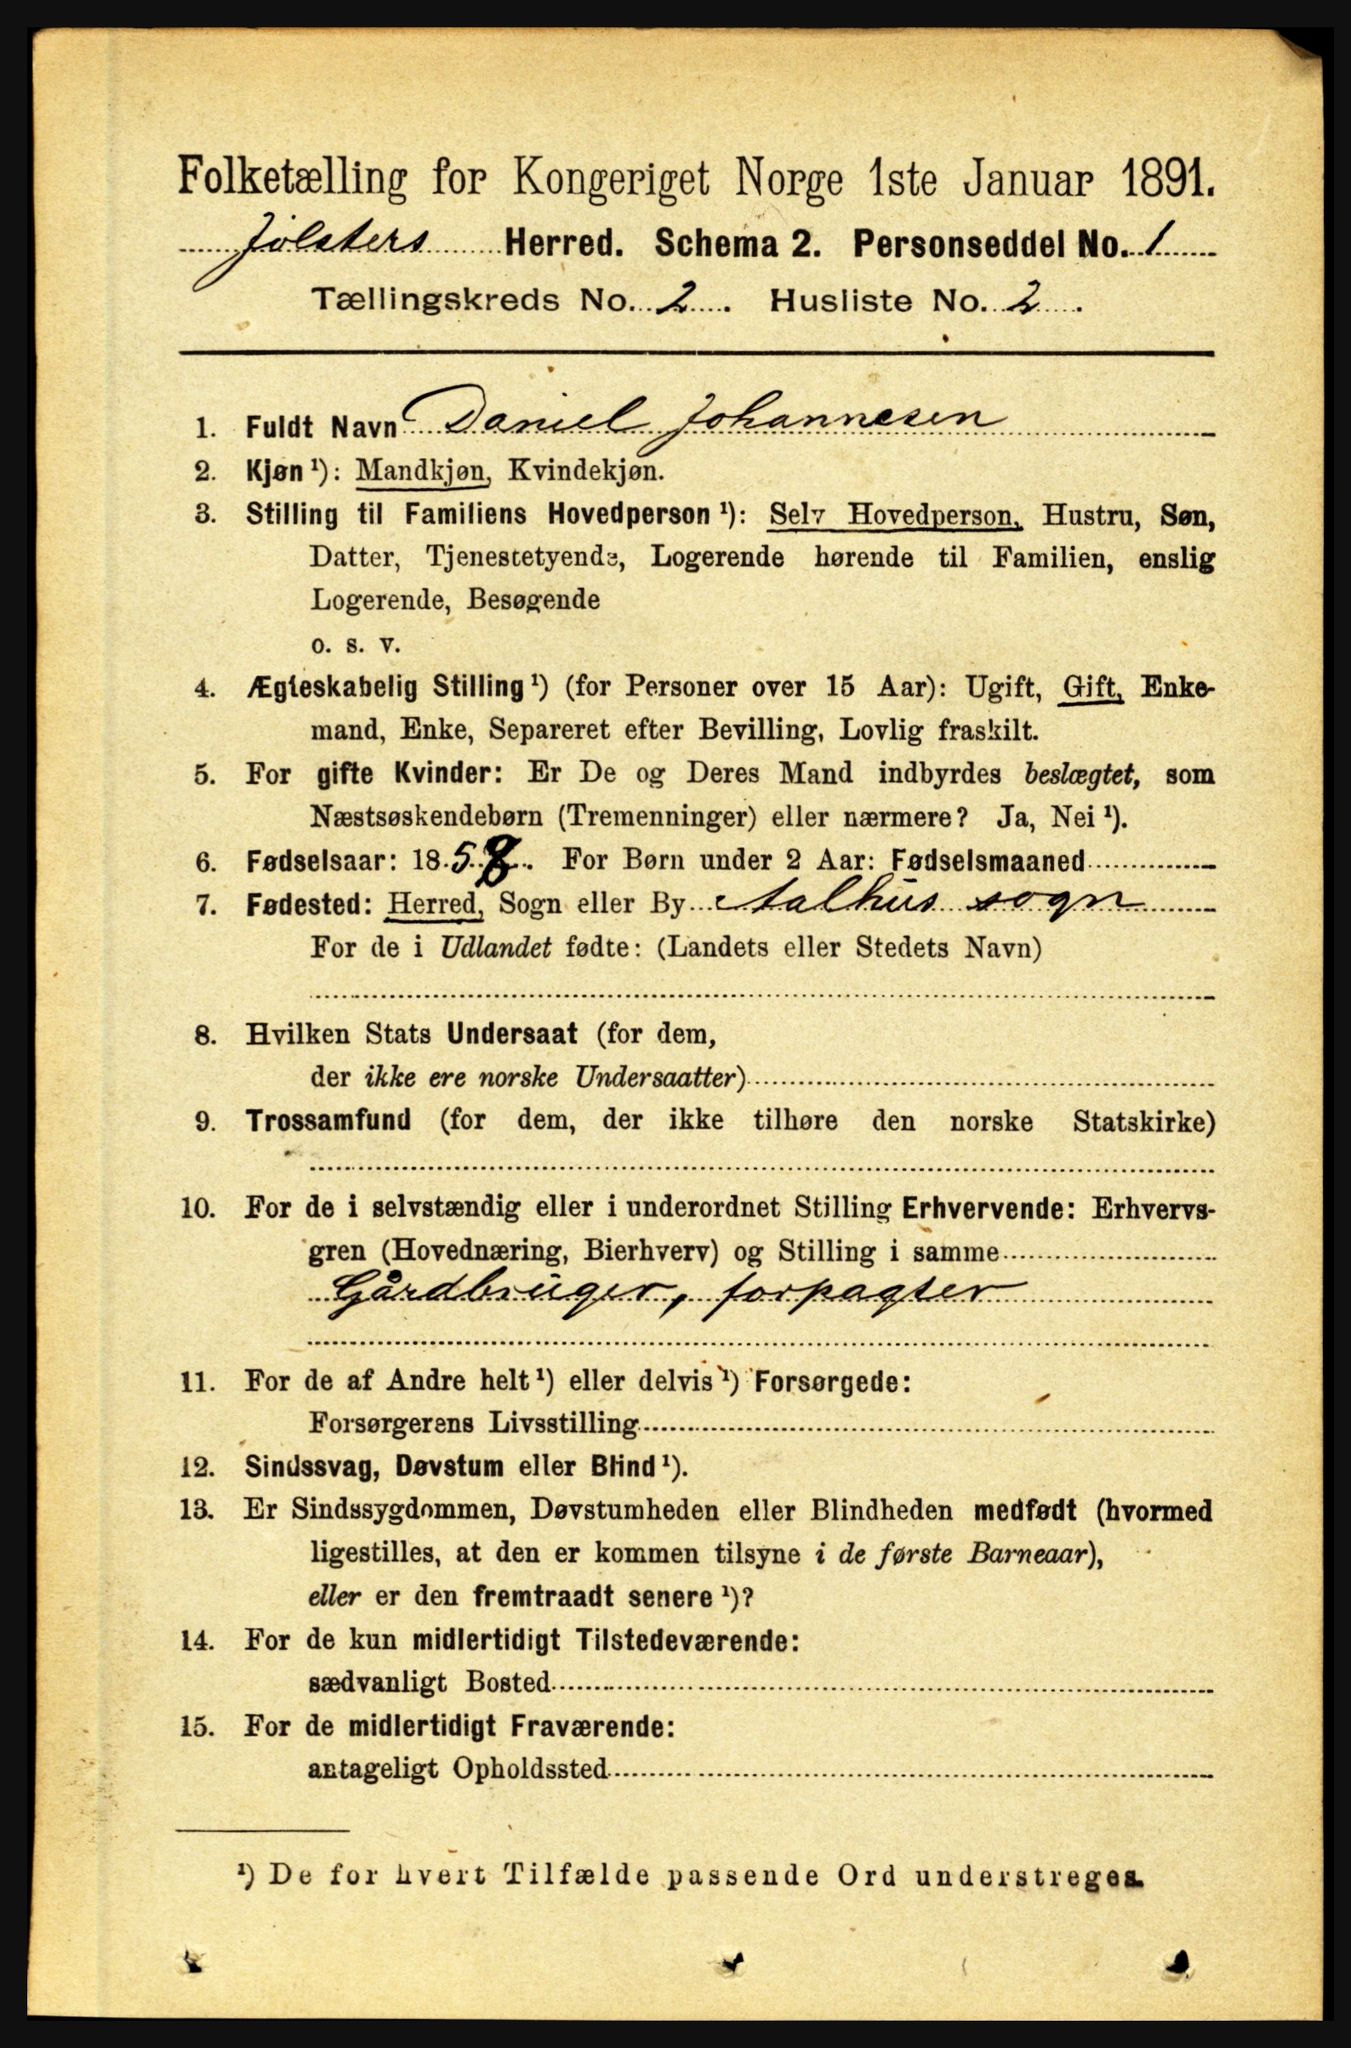 Folketælling for Kongeriget Norge 1ste Januar 1891.
Jølsters Herred. Schema 2. Personseddel No. 1
Tællingskreds No. 2. Husliste No. 2.
1. Fuldt Navn Daniel Johannesen
2. Kjøn ¹): Mandkjøn, Kvindekjøn.
3. Stilling til Familiens Hovedperson ¹): Selv Hovedperson, Hustru, Søn,
Datter, Tjenestetyende, Logerende hørende til Familien, enslig
Logerende, Besøgende
o. s. v.
4. Ægteskabelig Stilling ¹) (for Personer over 15 Aar): Ugift, Gift, Enke-
mand, Enke, Separeret efter Bevilling, Lovlig fraskilt.
5. For gifte Kvinder: Er De og Deres Mand indbyrdes beslægtet, som
Næstsøskendebørn (Tremenninger) eller nærmere? Ja, Nei ¹).
6. Fødselsaar: 185 . For Børn under 2 Aar: Fødselsmaaned
7. Fødested: Herred, Sogn eller By Aalhus sogn
For de i Udlandet fødte: (Landets eller Stedets Navn)
8. Hvilken Stats Undersaat (for dem,
der ikke ere norske Undersaatter)
9. Trossamfund (for dem, der ikke tilhøre den norske Statskirke)
10. For de i selvstændig eller i underordnet Stilling Erhvervende: Erhvervs-
gren (Hovednæring, Bierhverv) og Stilling i samme
Gårdbruger, forpagter
11. For de af Andre helt ¹) eller delvis ¹) Forsørgede:
Forsørgerens Livsstilling
12. Sindssvag, Døvstum eller Blind ¹).
13. Er Sindssygdommen, Døvstumheden eller Blindheden medfødt (hvormed
ligestilles, at den er kommen tilsyne i de første Barneaar),
eller er den fremtraadt senere ¹)?
14. For de kun midlertidigt Tilstedeværende:
sædvanligt Bosted
15. For de midlertidigt Fraværende:
antageligt Opholdssted
¹) De for hvert Tilfælde passende Ord understreges.